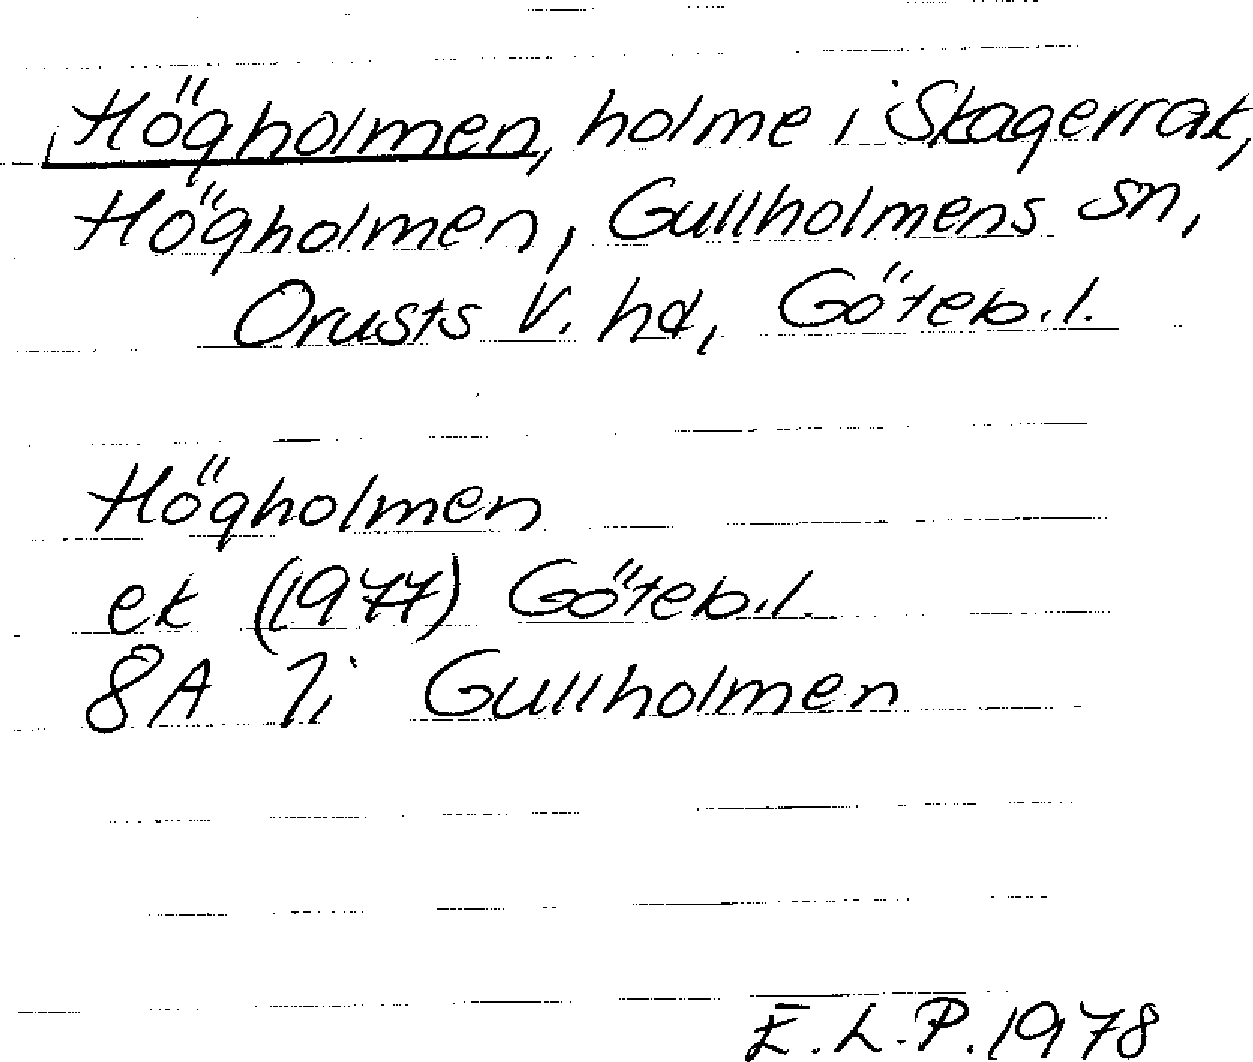 Högholmen, holme i Skagerrak,
Högholmen, Gullholmens sn,
Orusts V. hd, Göteb.l.
Högholmen
ek (1977) Göteb.l.
8A 7i Gullholmen
E.L.P. 1978